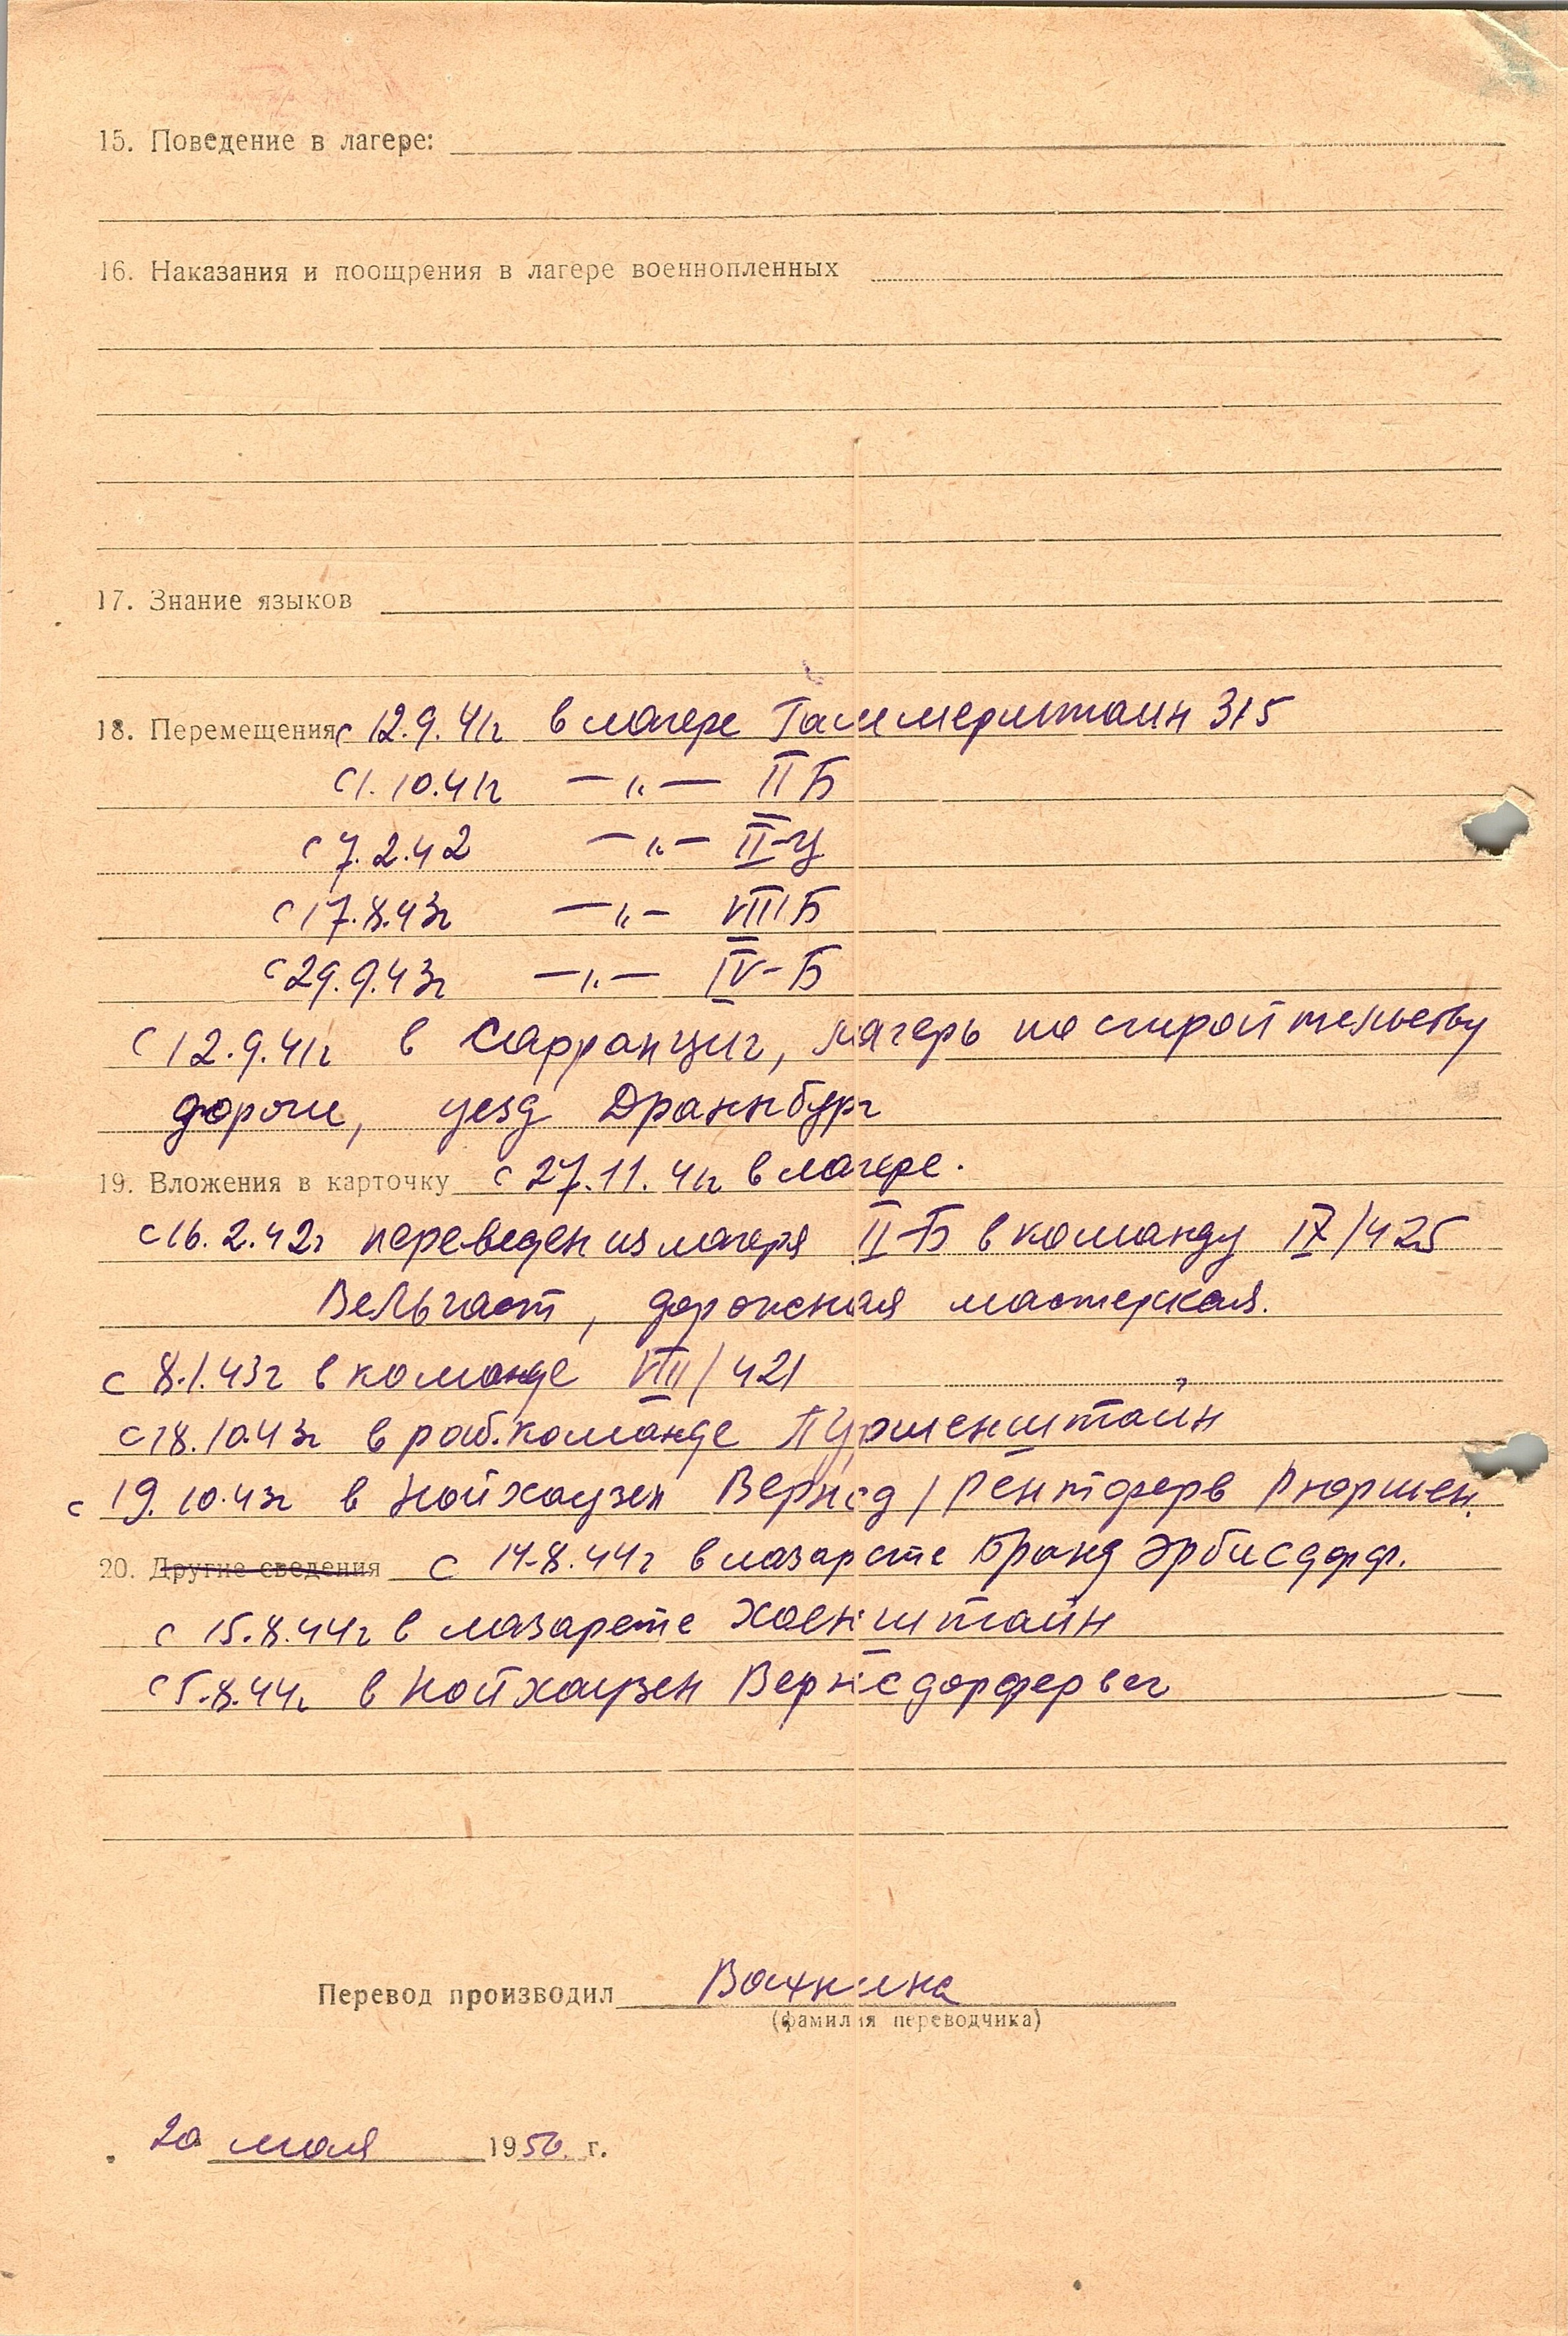 15. Поведение в лагере:
16. Наказания и поощрения в лагере военнопленных
17. Знание языков
18. Перемещения с 12.9.41г в лагере Гаммерштайн 315
с 1.10.41г —„— II Б
с 7.2.42 —„— II-Ц
с 17.8.43г —„— VIII Б
с 29.9.43г —„— IV-Б
с 12.9.41г в Сарранциг, лагерь по строительству
дороги, уезд Драннбург
19. Вложения в карточку с 27.11.41г в лагере.
с 16.2.42г переведен из лагеря II-Б в команду IX/425
Вельгаст, дорожная мастерская.
с 8.1.43г в команде VIII/421
с 18.10.43г в раб.команде Пуршенштайн
с 19.10.43г в Нойхаузен Вернсд/ Рюршен.
20. Другие сведения с 14.8.44г в лазарете Бранд Эрбисдорф.
с 15.8.44г в лазарете Хоенштайн
с 5.8.44г в Нойхаузен Вернсдорфервег
Перевод производил
(фамилия переводчика)
20 мая 1950 г.